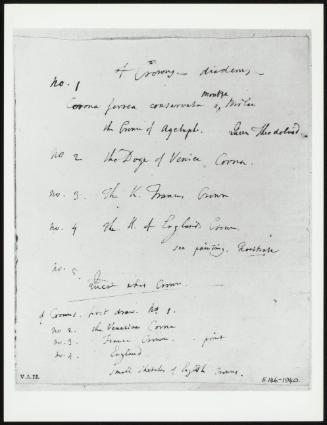 4 Crowns - diadems -
no. 1
monza
Corona ferrea conservata a, Milan
the Crown of Agelulph. Queen Theodolind.
no 2 the Doge of Venice Corona.
no. 3. The K. Frances Crown
no. 4 the K. of England's Crown
see painting.
no. 5.
Quest what Crown
4 Crowns. first draw. No 1.
no 2. the Venetian Corona
no. 3. France Crown. print
no. 4. England
small sketches of English Crowns.
V.A.M.
E 146-1940.